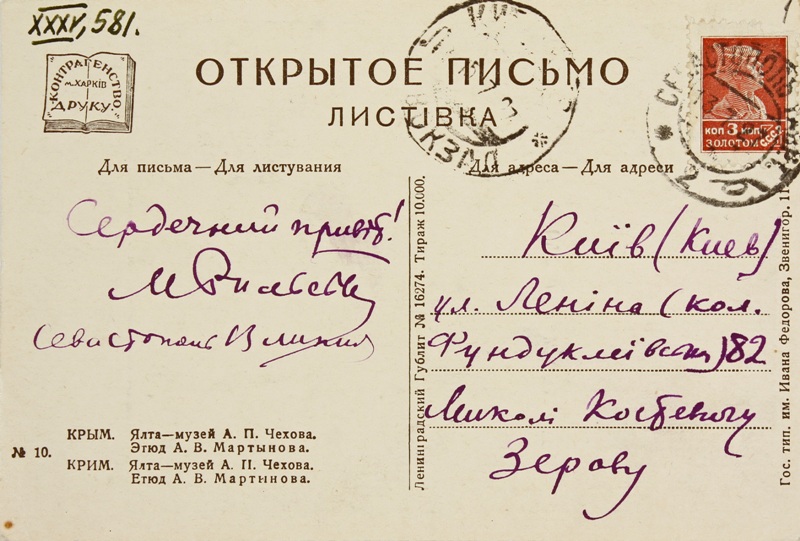 XXXV, 581.
КОНТРАГЕНСТВО
м. ХАРКІВ
ДРУКУ
ОТКРЫТОЕ ПИСЬМО
ЛИСТІВКА
Для письма—Для листування
Для адреса—Для адреси
КОП 3 КОП
ЗОЛОТОМ
СССР
СЕВАСТОПОЛЬ
Сердечний привіт!
М Рильський
Севастополь 13 липня
Київ (Киев)
ул. Леніна (кол.
Фундуклеївська) 82
Миколі Костевичу
Зерову
№ 10.
КРЫМ. Ялта—музей А. П. Чехова.
Этюд А. В. Мартынова.
КРИМ. Ялта—музей А. П. Чехова.
Етюд А. В. Мартынова.
Ленинградский Гублит № 16274. Тираж 10.000.
Гос. тип. им. Ивана Федорова, Звенигор, 11